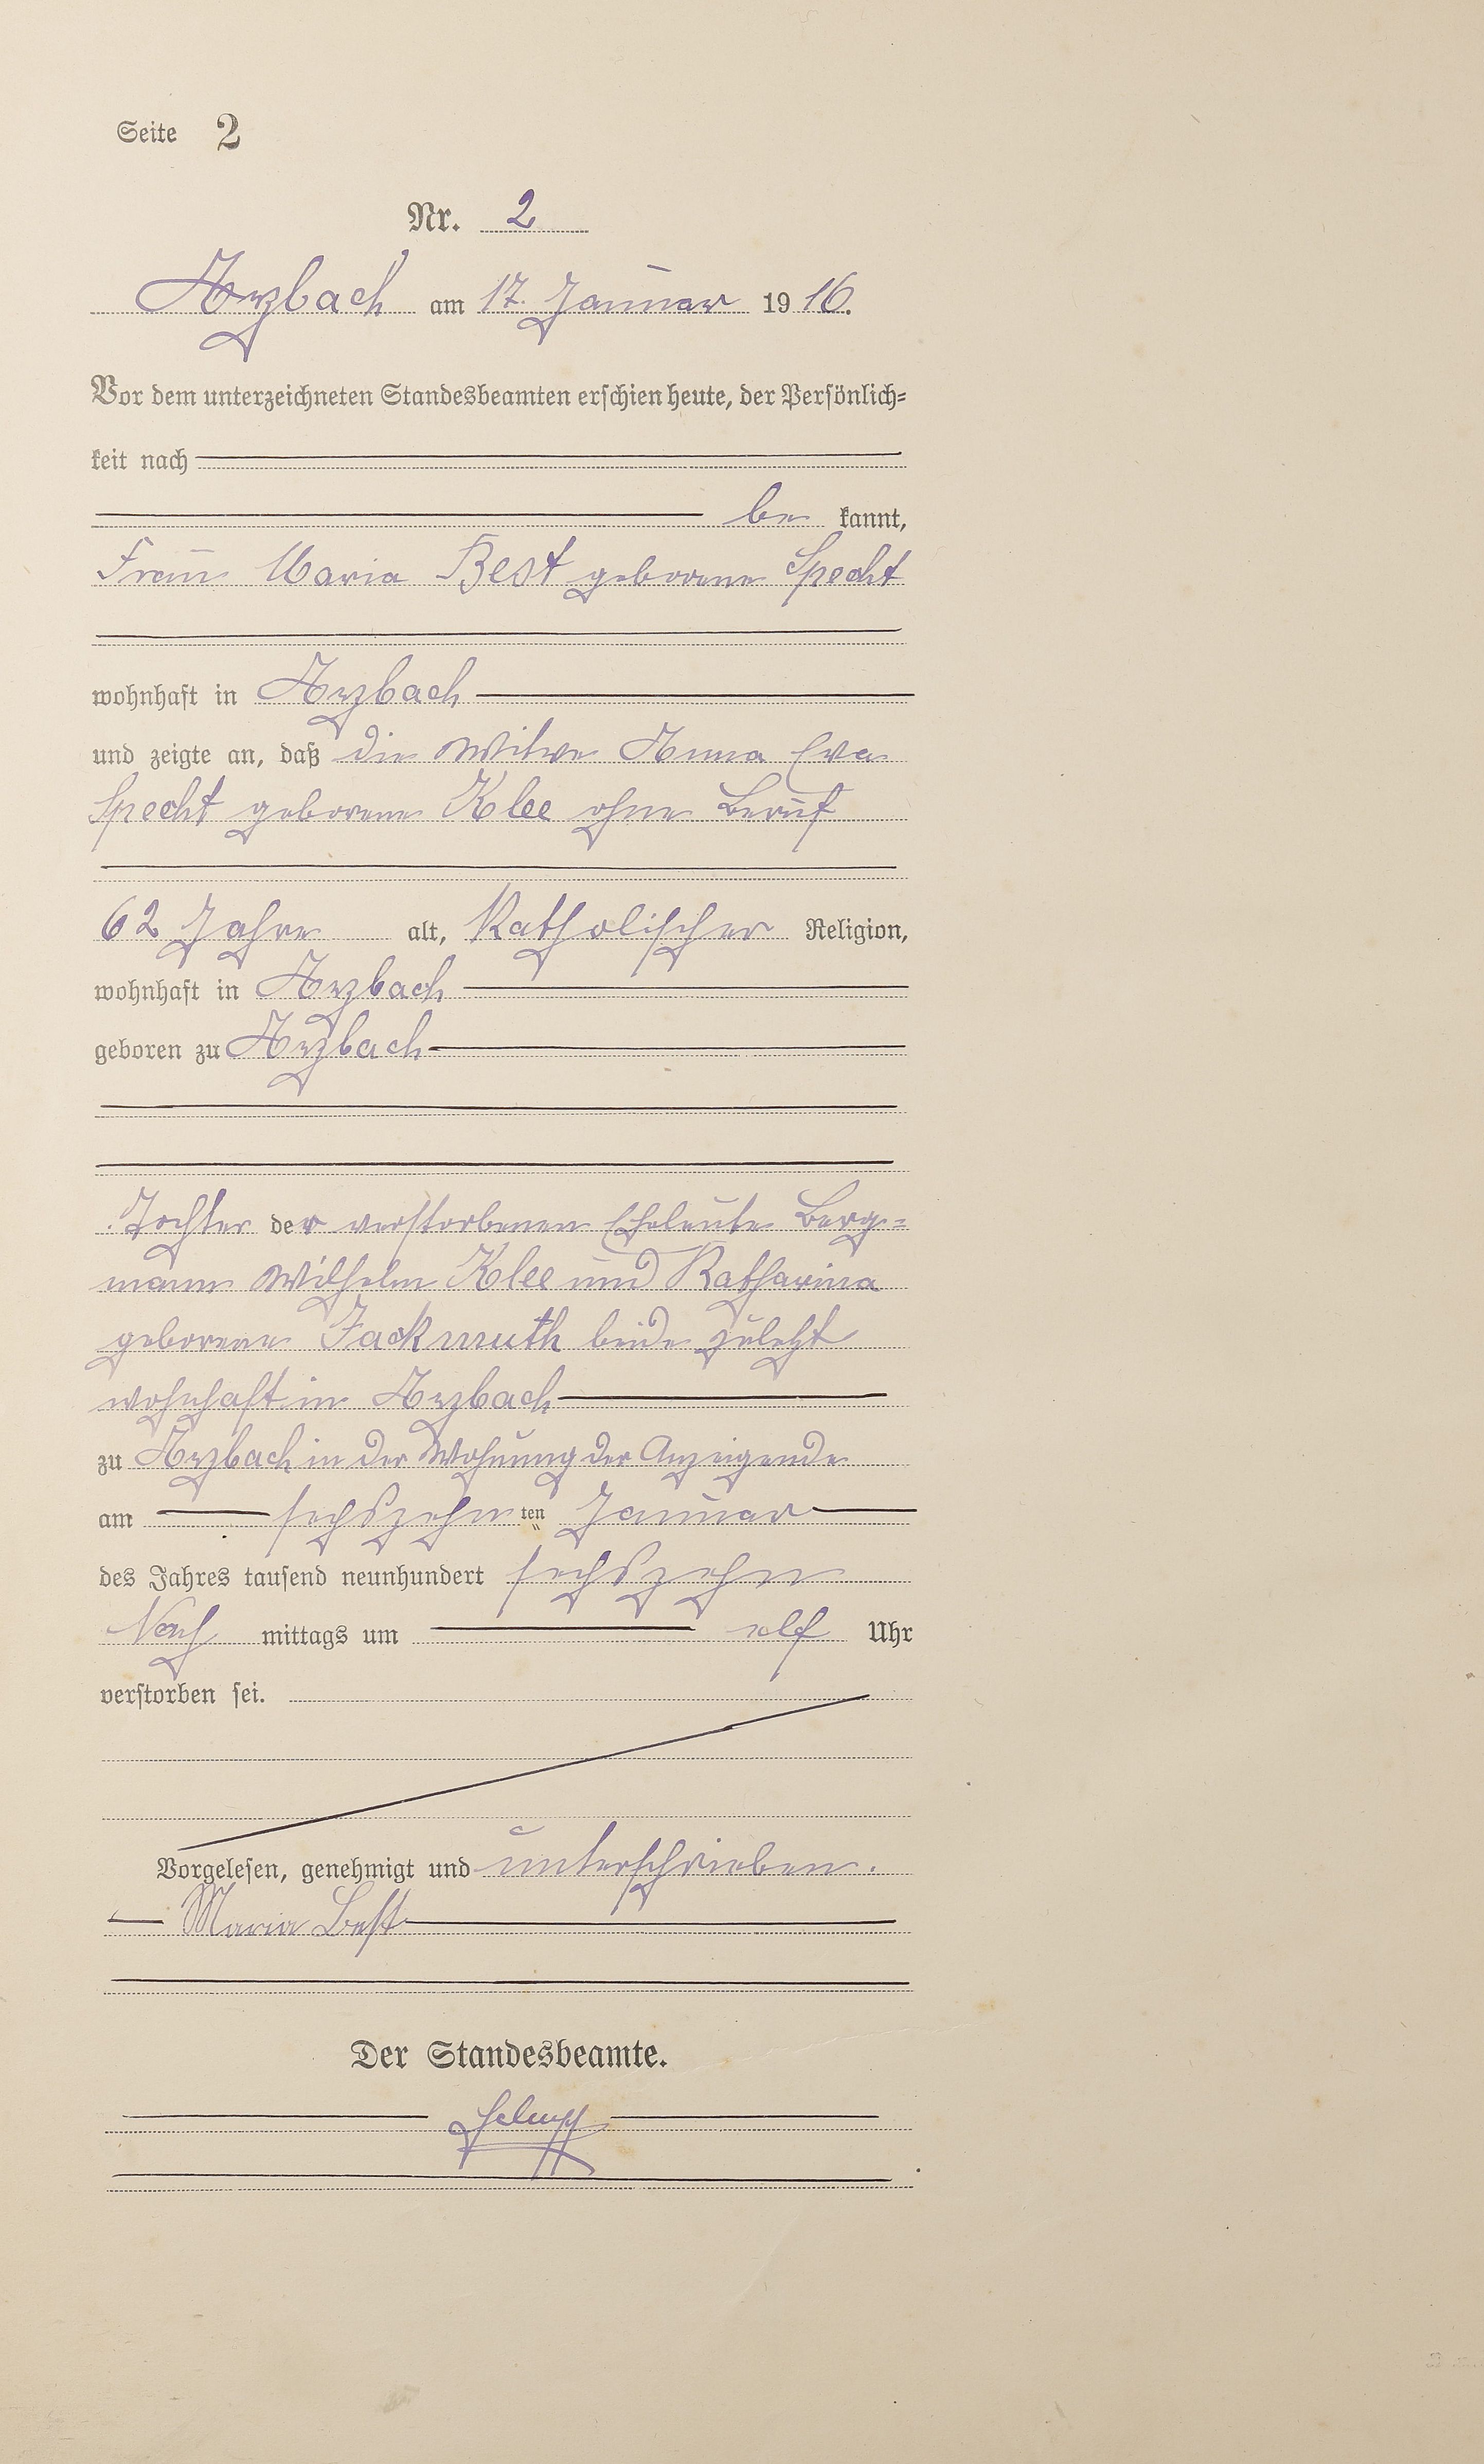 Seite 2
Nr. 2
Arzbach am 17. Januar 1916.
Vor dem unterzeichneten Standesbeamten erschien heute, der Persönlich-
keit nach
be kannt,
Frau Maria Best geborene Specht
wohnhaft in Arzbach
und zeigte an, daß die Witwe Anna Eva
Specht geborene Klee ohne Beruf
62 Jahre alt, Katholischer Religion,
wohnhaft in Arzbach
geboren zu Arzbach
Tochter der verstorbenen Eheleute Berg-
mann Wilhelm Klee und Katharina
geborene Jackmuth beide zuletzt
wohnhaft in Arzbach
zu Arzbach in der Wohnung der Anzeigende
am sechszehn ten Januar
des Jahres tausend neunhundert sechszehn
Nach mittags um elf Uhr
verstorben sei.
Vorgelesen, genehmigt und unterschrieben.
Maria Best
Der Standesbeamte.